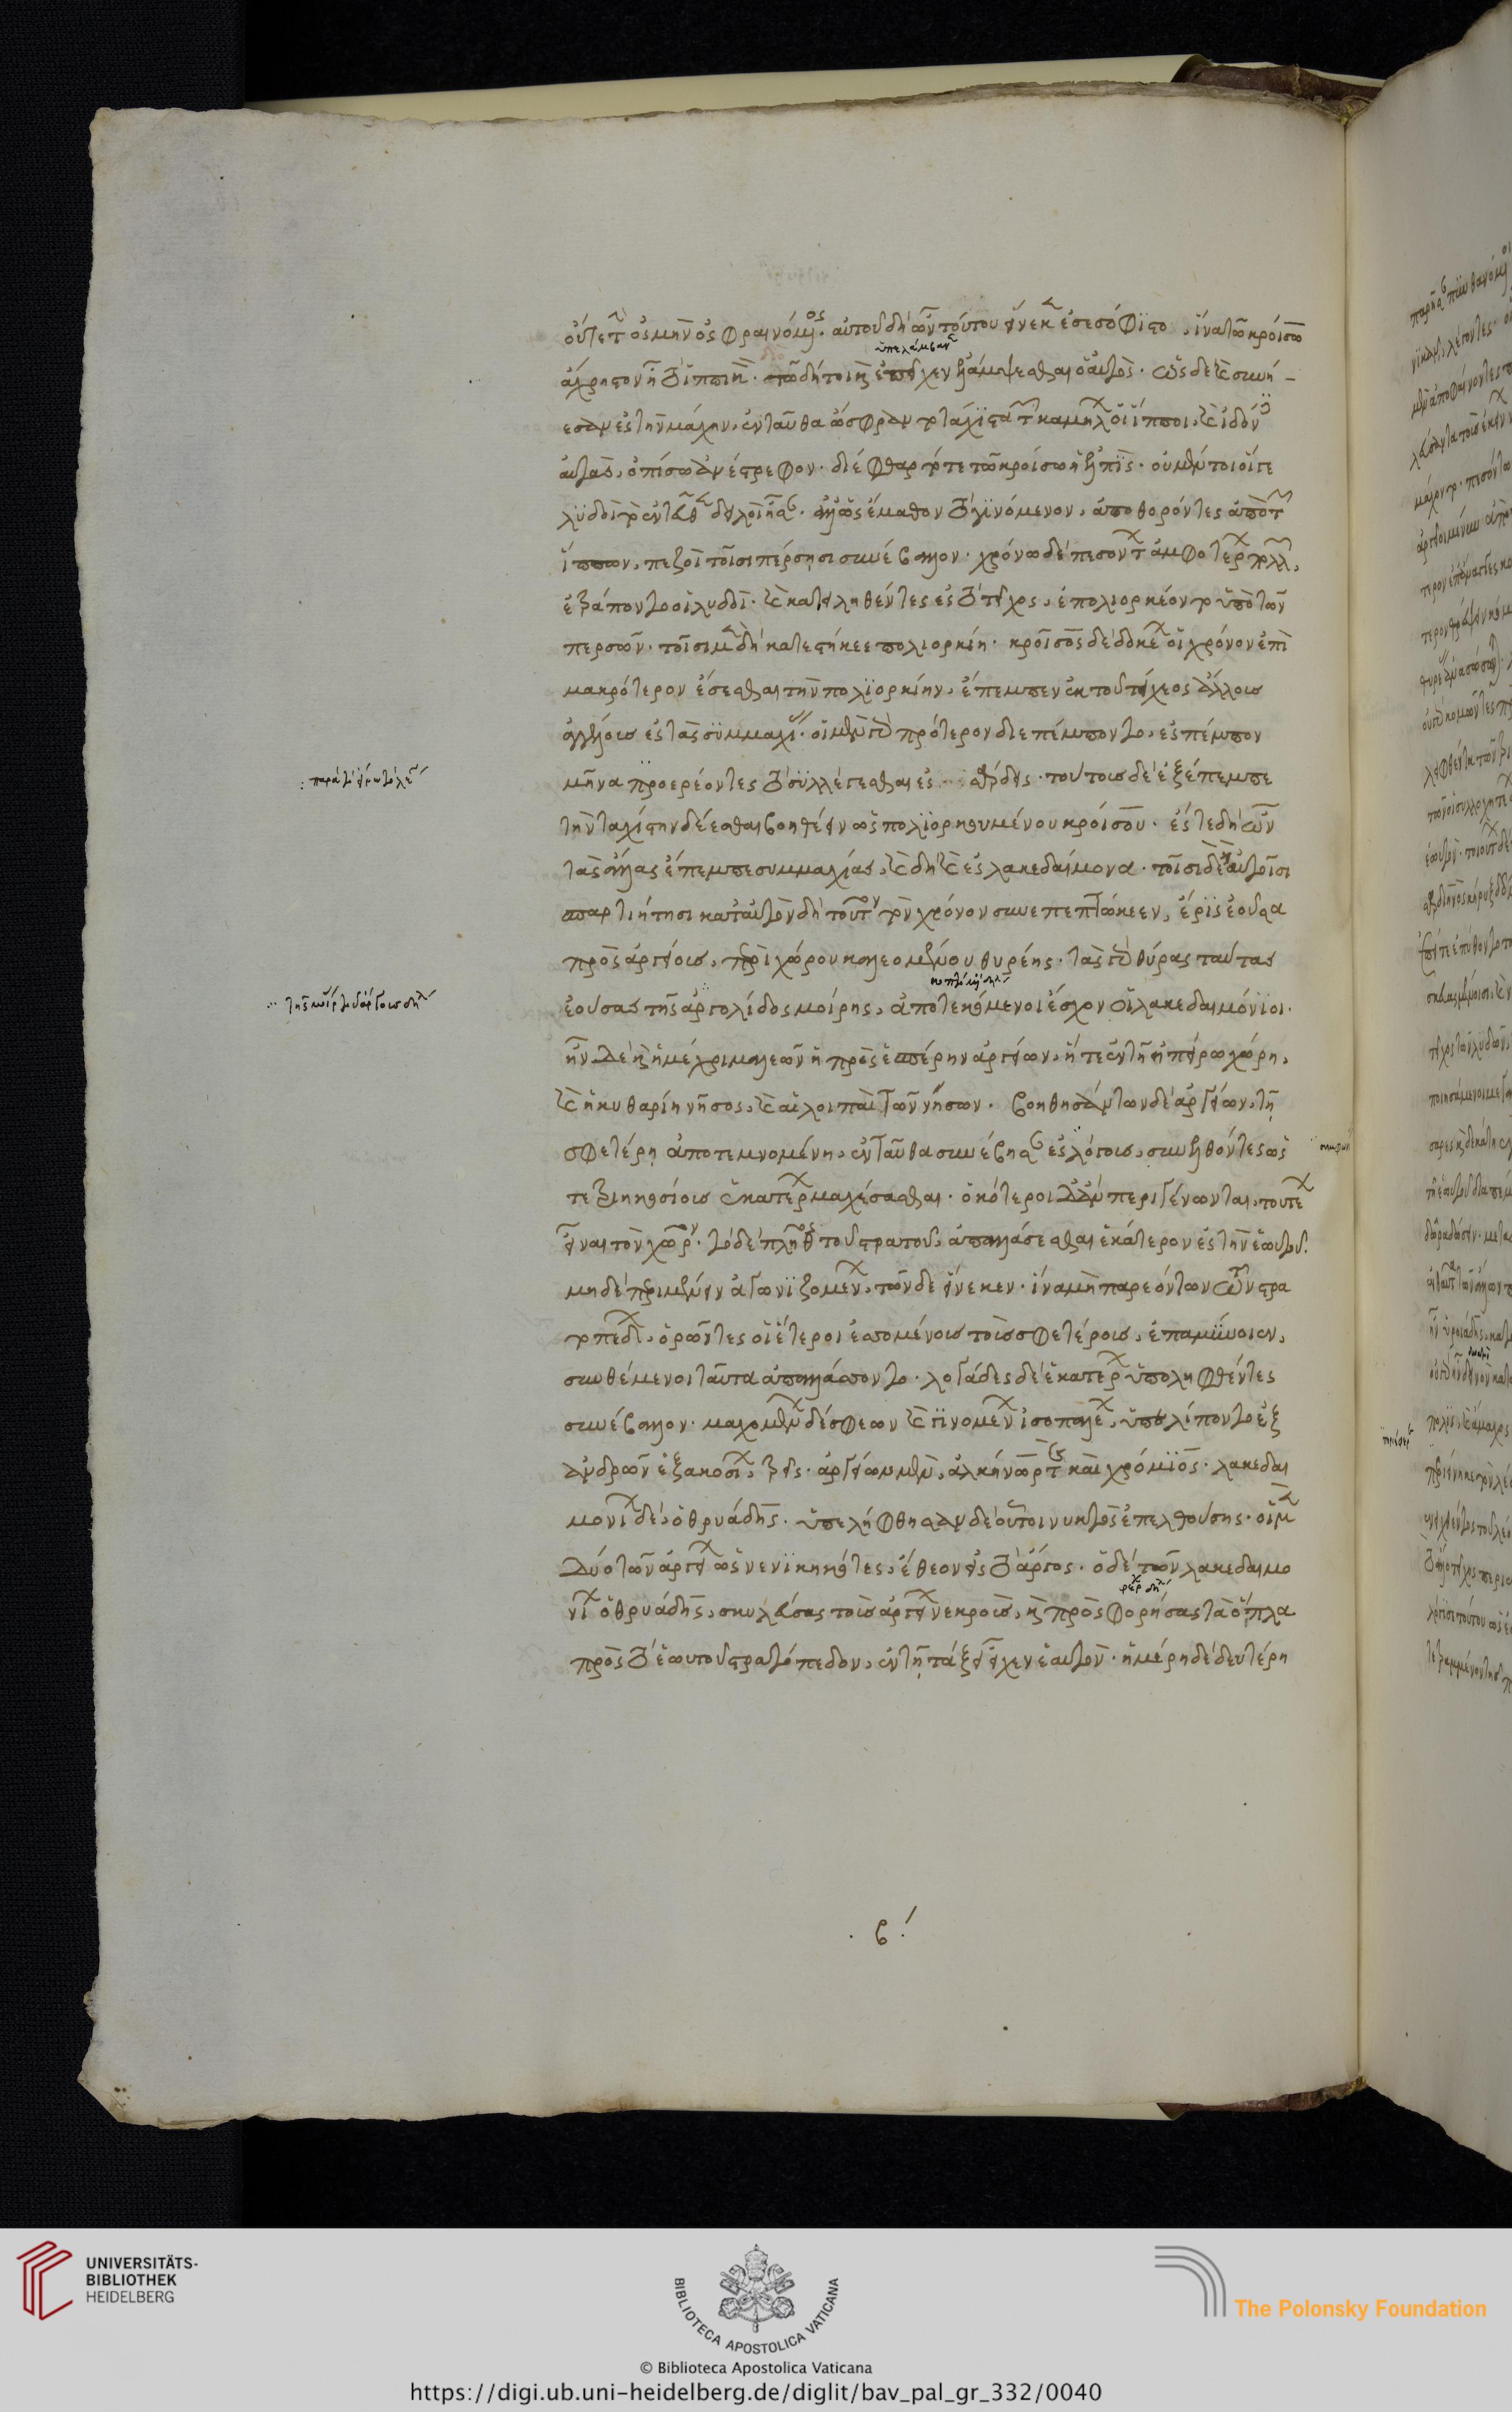 οὔτε τὴν ὀσμὴν ὀσφραινόμενος. αὐτοῦ δὴ ὦν τούτου εἵνεκεν ἐσεσόφιστο, ἵνα τῶ κροίσω
ἄχρηστον ἦ τὸ ἱππικόν. τῶ δή τοι καὶ ἐπεῖχεν ἐλλάμψεσθαι ὁ λυδός. ὡς δὲ καὶ συνή–
ὑπελάμβανε
εσαν ἐς τὴν μάχην, ἐνταῦθα ὤσφραντο τάχιστα τῶν καμήλων οἱ ἵπποι, καὶ εἶδον
αὐτὰς, ὀπίσω ἀνέστρεφον. διέφθαρτό τε τῶ κροίσω ἡ ἐλπίς. οὐ μέντοι οἵ γε
λυδοὶ τὸ ἐνταῦθεν δειλοὶ ἦσαν. ἀλλ' ὡς ἔμαθον τὸ γινόμενον, ἀποθορόντες ἀπὸ τῶν
ἵππων, πεζοὶ τοῖσι πέρσησι συνέβαλλον. χρόνω δὲ πεσόντων ἀμφοτέρων πολλῶν,
ἐτράποντο οἱ λυδοί. καὶ κατειληθέντες ἐς τὸ τεῖχος, ἐπολιορκέοντο ὑπὸ τῶν
περσῶν. τοῖσι μὲν δὴ κατεστήκεε πολιορκίη. κροῖσος δὲ δοκέων οἱ χρόνον ἐπὶ
μακρότερον ἔσεσθαι τὴν πολιορκίην, ἔπεμπεν ἐκ τοῦ τείχεος ἄλλους
ἀγγέλους ἐς τὰς συμμαχίας. οἱ μὲν γὰρ πρότερον διεπέμποντο, ἐς πέμπτον
μῆνα προερέοντες συλλέγεσθαι ἐς σάρδεις. τούτους δὲ ἐξέπεμπε
τὴν ταχίστην δέεσθαι βοηθέειν ὡς πολιορκευμένου κροίσου. ἔς τε δὴ ὦν
τὰς ἄλλας ἔπεμπε συμμαχίας, καὶ δὴ καὶ ἐς λακεδαίμονα. τοῖσι δὲ καὶ αὐτοῖσι
σπαρτιήτησι κατ' αὐτὸν δὴ τοῦτον τὸν χρόνον συνεπεπτώκεεν, ἔρις ἐοῦσα
πρὸς ἀργείους, περὶ χώρου καλεομένου θυρέης. τὰς γὰρ θύρας ταύτας
ἐούσας τῆς ἀργολίδος μοίρης, ἀποτεκόμενοι ἔσχον οἱ λακεδαιμόνιοι.
ἦν δὲ καὶ ἡ μέχρι μαλεῶν ἡ πρὸς ἑσπέρην ἀργείων, ἥ τε ἐν τῆ ἠπείρω χώρη,
καὶ ἡ κυθαρίη νῆσος, καὶ αἱ λοιπαὶ τῶν νήσων. βοηθησάντων δὲ ἀργείων, τῆ
σφετέρη ἀποτεμνομένη, ἐνταῦθα συνέβησαν ἐς λόγους, συνελθόντες ὡς
τε τριηκοσίους ἑκατέρων μαχέσασθαι. ὁκότεροι δ' ἂν περιγένωνται, τούτων
εἶναι τὸν χῶρον. τὸ δὲ πλῆθος τοῦ στρατοῦ, ἀπαλλάσεσθαι ἑκάτερον ἐς τὴν ἑωυτοῦ.
μηδὲ περιμένειν ἀγωνιζομένων, τῶνδε εἵνεκεν. ἵνα μὴ παρεόντων τῶν στρα
τοπέδων, ὁρῶντες οἱ ἕτεροι ἑσσομένους τοὺς σφετέρους, ἐπαμύνοιεν,
συνθέμενοι ταῦτα ἀπαλλάσσοντο. λογάδες δὲ ἑκατέρων ὑπολειφθέντες
συνέβαλλον. μαχομένων δέ σφεων καὶ γινομένων ἰσοπαλέων, ὑπελίποντο ἐξ
ἀνδρῶν ἑξακοσίων, τρεῖς. ἀργείων μὲν, ἀλκήνωρ τε καὶ χρόμιος. λακεδαι
μονίων δὲ, ὀθρυάδης. ὑπελήφθησαν δὲ οὗτοι νυκτὸς ἐπελθούσης. οἱ μὲν
δύο τῶν ἀργείων ὡς νενικηκότες, ἔθεον ἐς τὸ ἄργος. ὁ δὲ τῶν λακεδαιμο
νίων ὀθρυάδης, σκυλεύσας τοὺς ἀργείων νεκροὺς, καὶ προσφορήσας τὰ ὅπλα
πρὸς τὸ ἑωυτοῦ στρατόπεδον, ἐν τῆ τάξει εἶχεν ἑαυτόν. ἡμέρη δὲ δευτέρη
. ϛ΄.
UNIVERSITÄTS-
BIBLIOTHEK
HEIDELBERG
BIBLIOTECA APOSTOLICA VATICANA
© Biblioteca Apostolica Vaticana
The Polonsky Foundation
https://digi.ub.uni-heidelberg.de/diglit/bav_pal_gr_332/0040